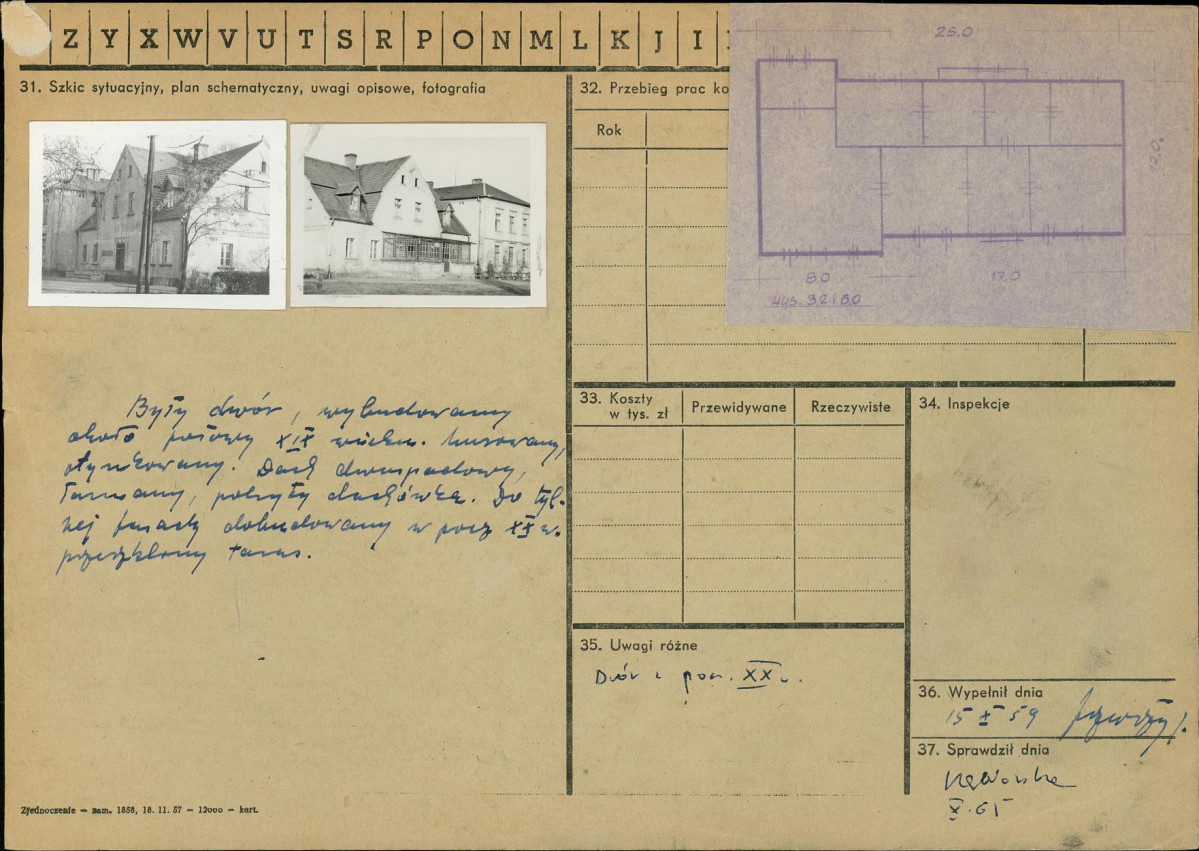 Z Y X W V U T S R P O N M L K J I
31. Szkic sytuacyjny, plan schematyczny, uwagi opisowe, fotografia
Były dwór, wybudowany
około połowy XIX wieku. Murowany,
otynkowany. Dach dwuspadowy,
łamany, pokryty dachówką. Do tyl-
nej fasady dobudowany w pocz XX w.
przeszklony taras.
32. Przebieg prac ko
Rok
25,0
12,0
8,0
17,0
wys. 3,2 i 6,0
33. Koszty
w tys. zł
Przewidywane
Rzeczywiste
34. Inspekcje
35. Uwagi różne
Dwór z pocz. XX w.
36. Wypełnił dnia
15 X 59
37. Sprawdził dnia
X. 65
Zjednoczenie – zam. 1858, 16. 11. 57 – 12000 – kart.